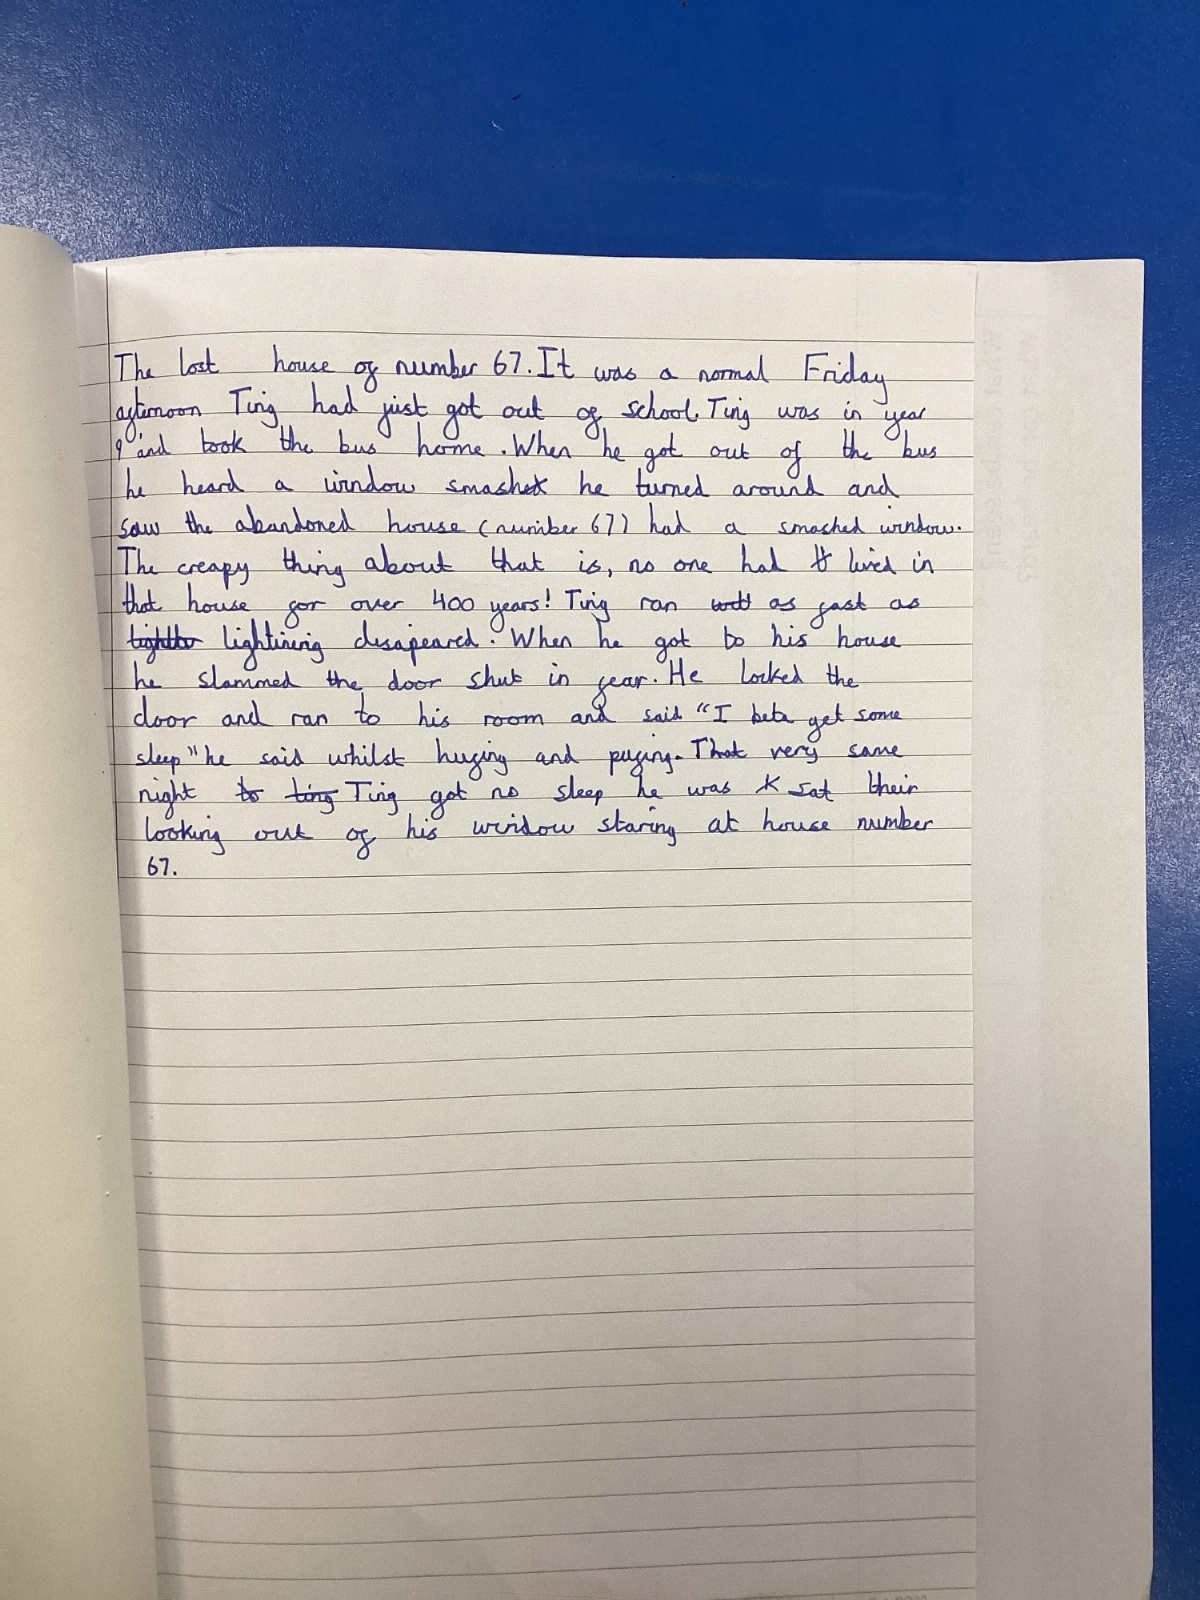 The lost house of number 67. It was a normal Friday
afternoon Ting had just got out of school. Ting was in year
9 and took the bus home. When he got out of the bus
he heard a window smashe he turned around and
saw the abandoned house (number 67) had a smashed window.
The creapy thing about that is, no one had lived in
that house for over 400 years! Ting ran as fast as
lightining disapeared. When he got to his house
he slammed the door shut in fear. He locked the
door and ran to his room and said "I beta get some
sleep" he said whilst hufing and pufing. That very same
night Ting got no sleep he was sat their
looking out of his window staring at house number
67.